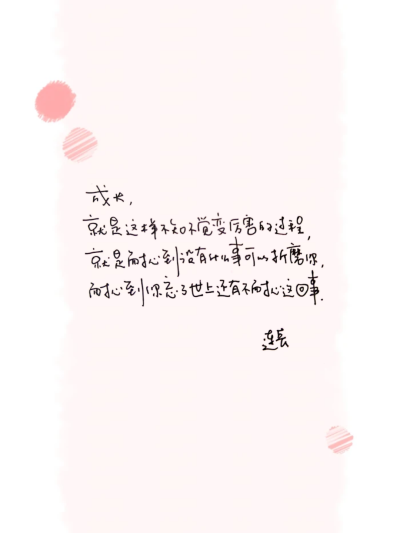 成长，
就是这样不知不觉变厉害的过程，
就是耐心到没有什么事可以折磨你，
耐心到你忘了世上还有不耐心这回事．
连长